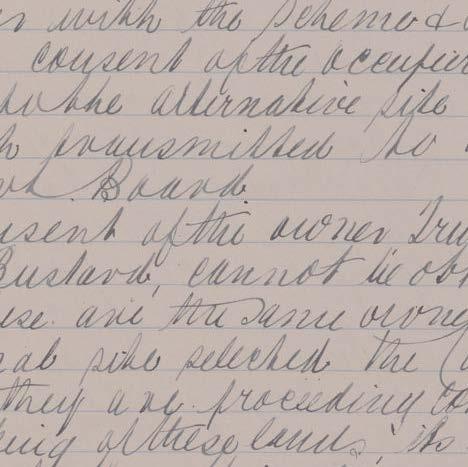 with the scheme &
consent of the occupier
to the alternative site
transmitted to
Board
of the owner
Bustard, cannot be
are the same owner
site selected the
they are proceeding
of these lands, its